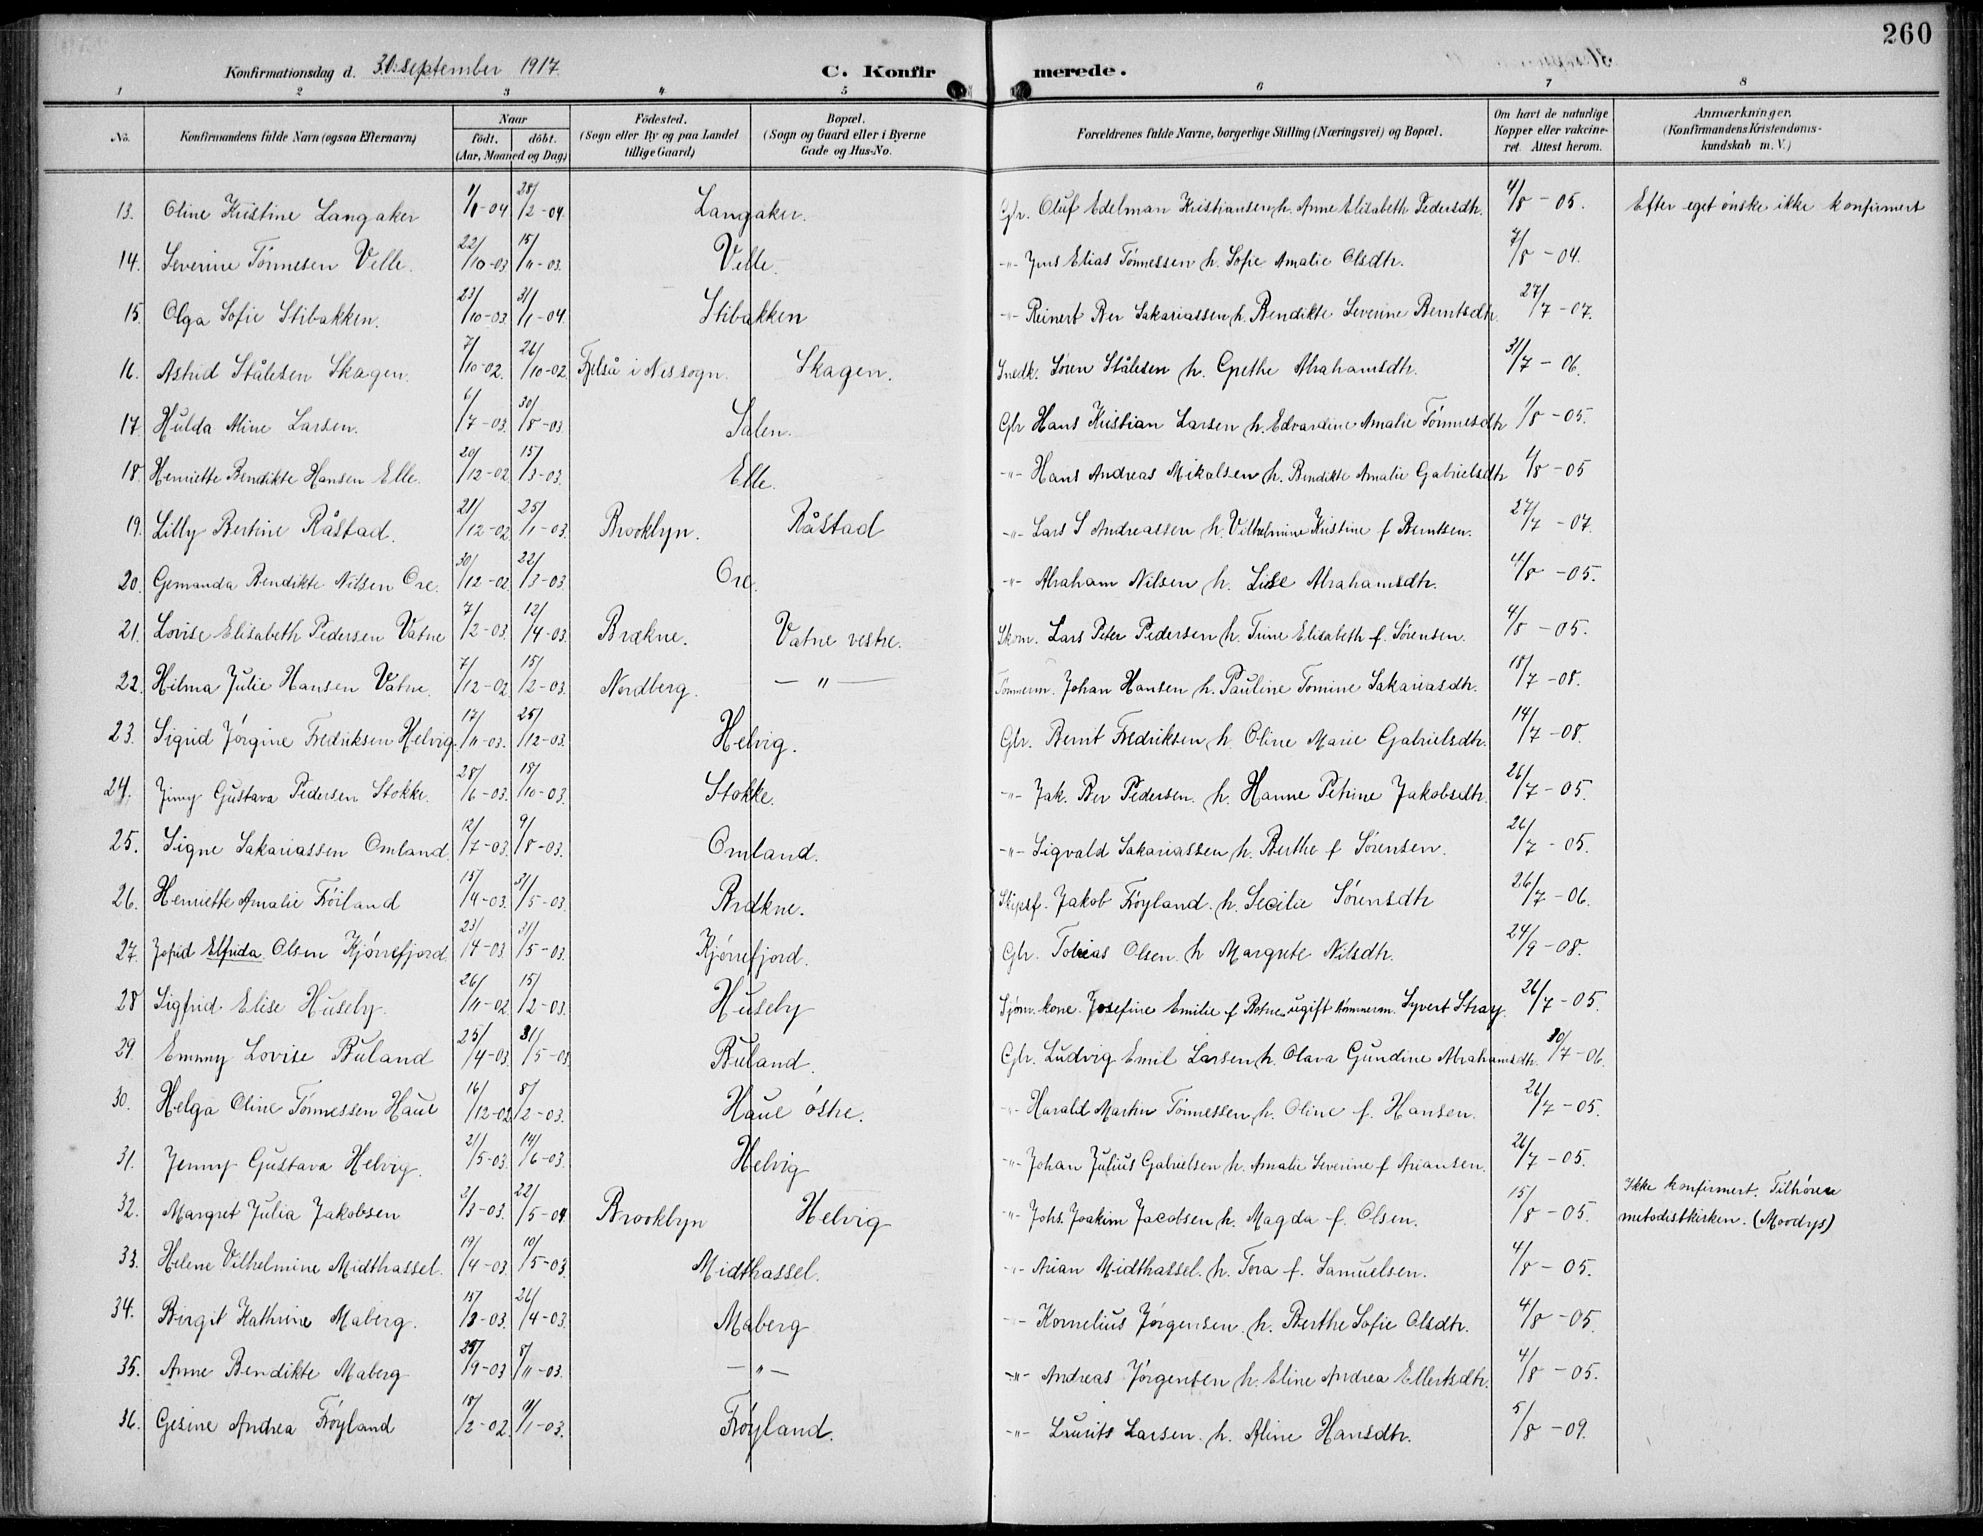 260
Konfirmationsdag d. 30. september 1917. C. Konfirmerede.
1 2 3 4 5 6 7 8
No. Konfirmandens fulde Navn (ogsaa Efternavn) Naar født. døbt. (Aar, Maaned og Dag) Fødested. (Sogn eller By og paa Landet tillige Gaard) Bopæl. (Sogn og Gaard eller i Byerne Gade og Hus-No. Forældrenes fulde Navne, borgerlige Stilling (Næringsvei) og Bopæl. Om havt de naturlige Kopper eller vakcineret. Attest herom. Anmærkninger. (Konfirmandens Kristendomskundskab m. V.)
13. Oline Kristine Langaker 1/1-04 28/2-04. Langaker. Gbr. Oluf Edelman Kristiansen h. Anne Elisabeth Pedersdtr. 4/8-05. Efter eget ønske ikke konfirmert
14. Severine Tønnesen Velle. 22/10-03 15/11-03. Velle. -"- Jens Elias Tønnessen h. Sofie Amalie Olsdtr. 7/8-04.
15. Olga Sofie Stibakken. 23/10-03 31/1-04. Stibakken -"- Reinert Ber Sakariassen h. Bendikte Severine Berntsdtr. 27/7-07.
16. Astrid Stålesen Skagen. 7/10-02. 26/10-02. Fjelså i Nes sogn. Skagen. Snedk. Søren Stålesen h. Grethe Abrahamsdtr. 31/7-06.
17. Hulda Aline Larsen. 6/7-03. 30/8-03. Salen. Gbr Hans Kristian Larsen h. Edvardine Amalie Tønnesdtr 1/8-05.
18. Henriette Bendikte Hansen Elle. 20/12-02 15/3-03. Elle. -"- Hans Andreas Mikalsen h. Bendikte Amalie Gabrielsdtr 4/8-05
19. Lilly Bertine Råstad. 21/12-02 25/1-03. Brooklyn. Råstad -"- Lars S Andreassen h. Vilhelmine Kristine f Berntsen. 27/7-07.
20. Gemanda Bendikte Nilsen Ore. 30/12-02. 22/3-03 Ore. -"- Abraham Nilsen h. Lise Abrahamsdtr. 4/8-05.
21. Lovise Elisabeth Pedersen Vatne 7/2-03. 12/4-03. Brækne. Vatne vestre. Skom. Lars Peter Pedersen h. Trine Elisabeth f. Sørensen. 4/8-05.
22. Hilma Julie Hansen Vatne. 7/12-02 15/2-03. Nordberg. -"- Tømmerm. Johan Hansen h. Pauline Tomine Sakariasdtr. 18/7-08.
23. Sigrid Jørgine Fredriksen Helvig. 17/11-03. 25/12-03. Helvig. Gbr. Bernt Fredriksen h. Oline Marie Gabrielsdtr. 14/7-08.
24. Jinny Gustava Pedersen Stokke. 28/6-03. 18/10-03. Stokke. -"- Jak. Ber Pedersen. h. Hanne Petrine Jakobsdtr. 26/7-05.
25. Signe Sakariassen Omland. 12/7-03. 9/8-03. Omland. -"- Sigvald Sakariassen h. Berthe f Sørensen. 26/7-05.
26. Henriette Amalie Frøiland 15/4-03. 31/5-03. Brækne. Skipsf. Jakob Frøyland. h. Secilie Sørensdtr 26/7-06.
27. Jofrid Elfrida Olsen Kjørrefjord. 23/4-03. 31/5-03. Kjørrefjord. Gbr. Tobias Olsen. h Margrete Nilsdtr. 24/9-08.
28 Sigfrid Elise Huseby. 26/11-02 15/2-03. Huseby Sjøm. kone. Josefine Emilie f ugift tømmerm. Syvert Stray. 26/7-05.
29. Emmy Lovise Buland 25/4-03. 31/5-03. Buland. Gbr. Ludvig Emil Larsen h. Olava Gundine Abrahamsdtr. 30/7-06.
30. Helga Oline Tønnessen Haue 16/12-02 8/2-03. Haue østre. -"- Harald Martin Tønnessen h. Oline f. Hansen. 26/7-05.
31. Jenny Gustava Helvig. 21/5-03. 14/6-03. Helvig -"- Johan Julius Gabrielsen h. Amalie Severine f Ariansen. 26/7-05.
32. Margret Julia Jakobsen 2/3-03. 22/5-04. Brooklyn Helvig -"- Johs. Joakim Jacobsen h. Magda f. Olsen. 15/8-05. Ikke konfirmert. Tilhører metodistkirken. (Moodys)
33. Helene Vilhelmine Midthassel. 19/4-03. 10/5-03. Midthassel. -"- Arian Midthassel. h. Tora f. Samuelsen. 4/8-05.
34. Birgit Kathrine Maberg. 15/3-03. 26/4-03. Maberg -"- Kornelius Jørgensen. h. Berthe Sofie Olsdtr. 4/8-05.
35. Anne Bendikte Maberg 25/9-03 8/11-03. -"- -"- Andreas Jørgensen h. Eline Andrea Ellertsdtr. 4/8-05.
36. Gesine Andrea Frøyland 18/2-02. 1/1-03. Frøyland. -"- Laurits Larsen. h. Aline Hansdtr. 5/8-09.